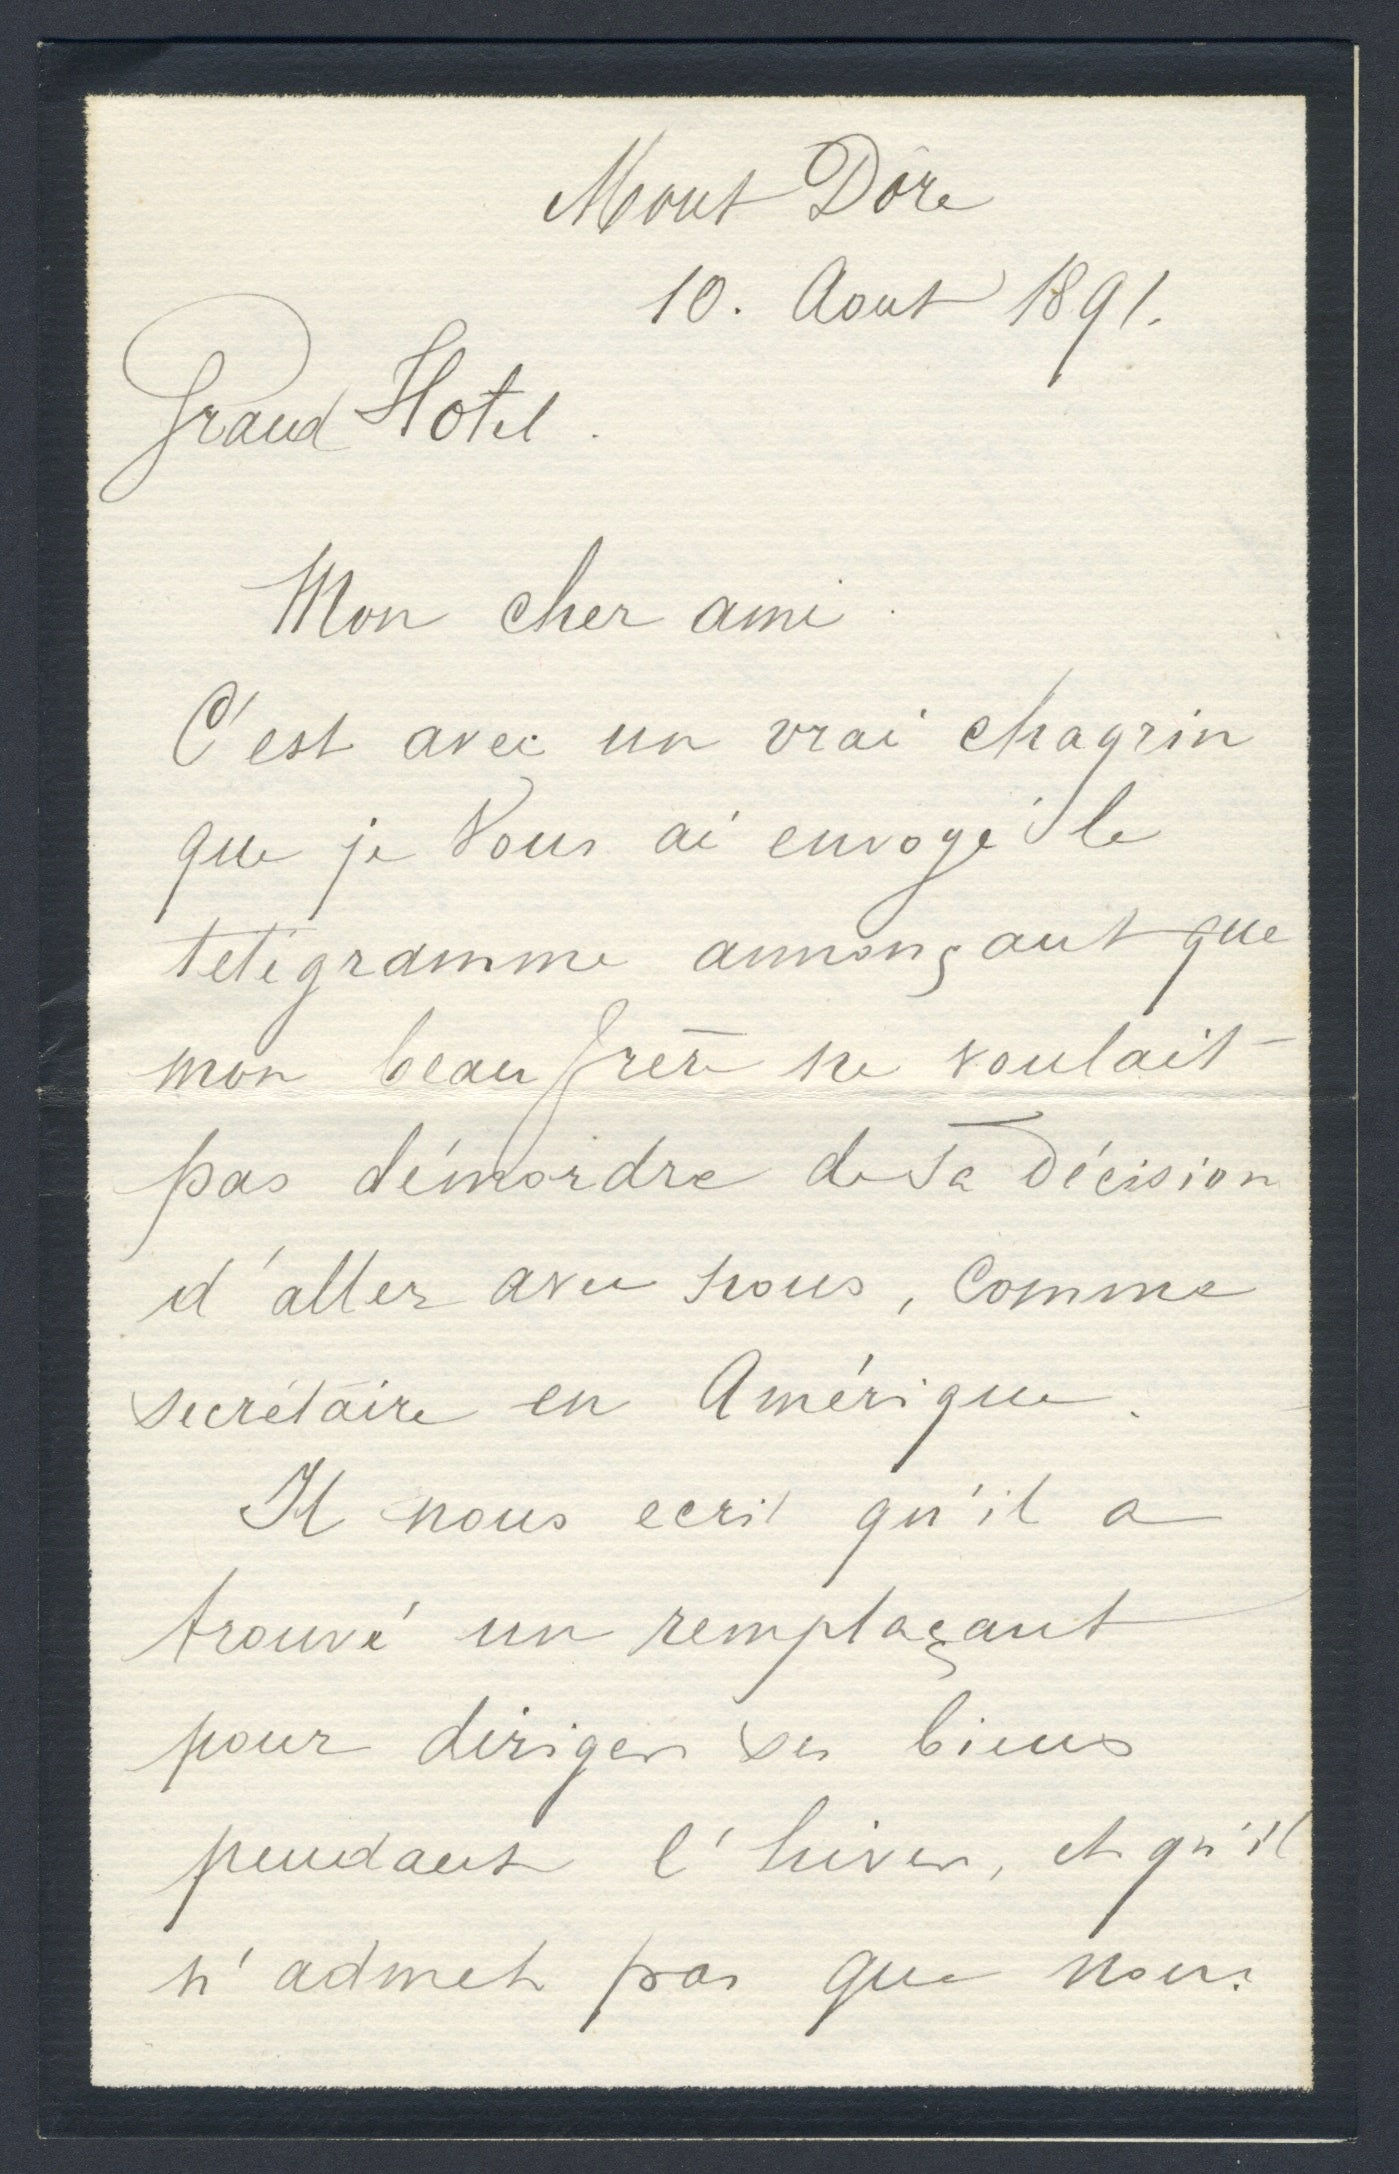 Mont Dôre
10. Aout 1891.
Grand Hotel.
Mon cher ami.
C'est avec un vrai chagrin
que je vous ai envoyé le
télégramme annonçant que
mon beau frère ne voulait
pas démordre de sa décision
d'aller avec nous, comme
secrétaire en Amérique.
Il nous ecrit qu'il a
trouvé un remplaçant
pour diriger ses biens
pendant l'hiver, et qu'il
n'admet pas que nous